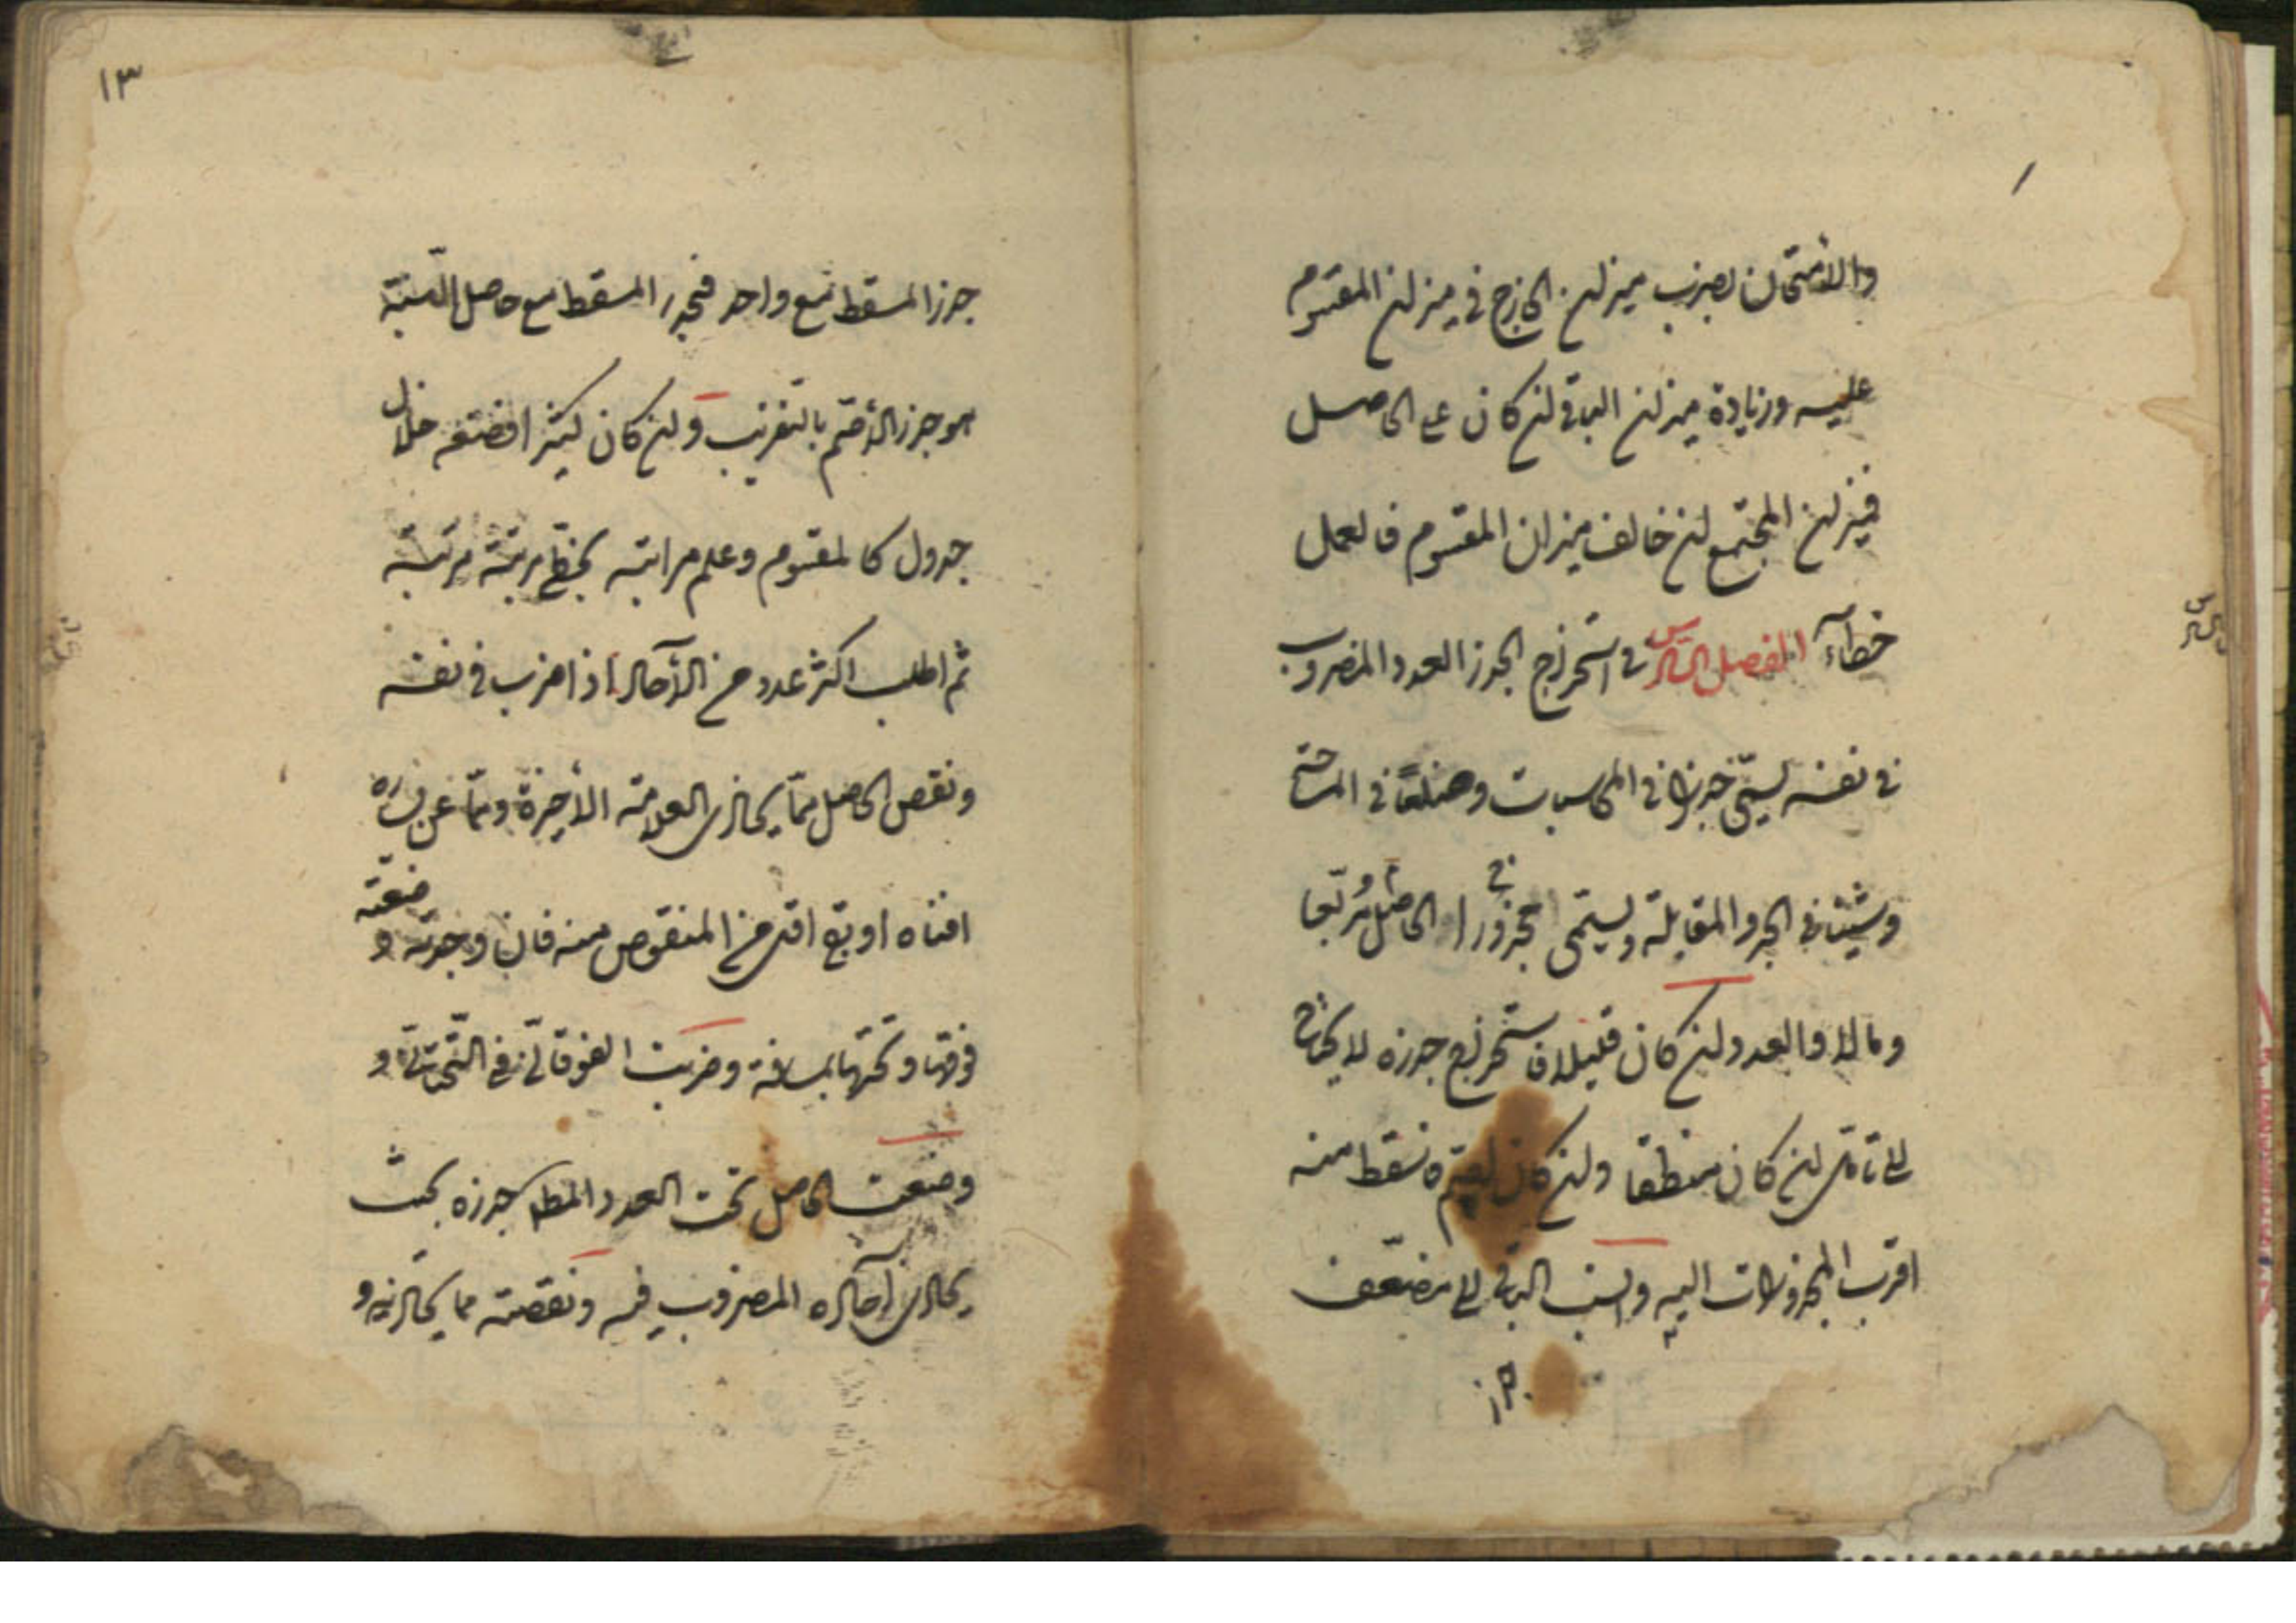 والأمتحان بضرب ميزان الخارج في ميزان المقسوم
عليه وزيادة ميزان الباقي ان كان على الحاصل
فميزان المجتمع ان خالف ميزان المقسوم فالعمل
خطآء الفصل السادس في استخراج الجذر العدد المضروب
في نفسه يسمّى جذرا في المحاسبات وضلعًا في المساحة
وشيئا في الجبر والمقابلة ويسمّى الحاصل مجذورا ومربّعا
ومالا والعدد ان كان قليلا فاستخراج جذره لا يحتاج
الى تأمل ان كان منطقا وان كان اصمّ فاسقط منه
اقرب المجذورات اليه وانسب الباقي الى مضعّف
جذر
جذر المسقط مع واحد فجذر المسقط مع حاصل النسبة
هو جذر الأصمّ بالتقريب وان كان كثيرا فضعه خلال
جدول كالمقسوم وعلم مراتبه بتخطّي مرتبة مرتبة
ثم اطلب اكثر عدد من الآحاد اذا ضرب في نفسه
ونقص الحاصل ممّا يحاذي العلامة الأخيرة وممّا عن يساره
افناه او بقي اقل من المنقوص منه فان وجدته وضعته
فوقها وتحتها بمسافة وضربت الفوقاني في التحتاني و
وضعت الحاصل تحت العدد المطلوب جذره بحيث
يحاذي آحاده المضروب فيه ونقصته مما يحاذيه و
١٣